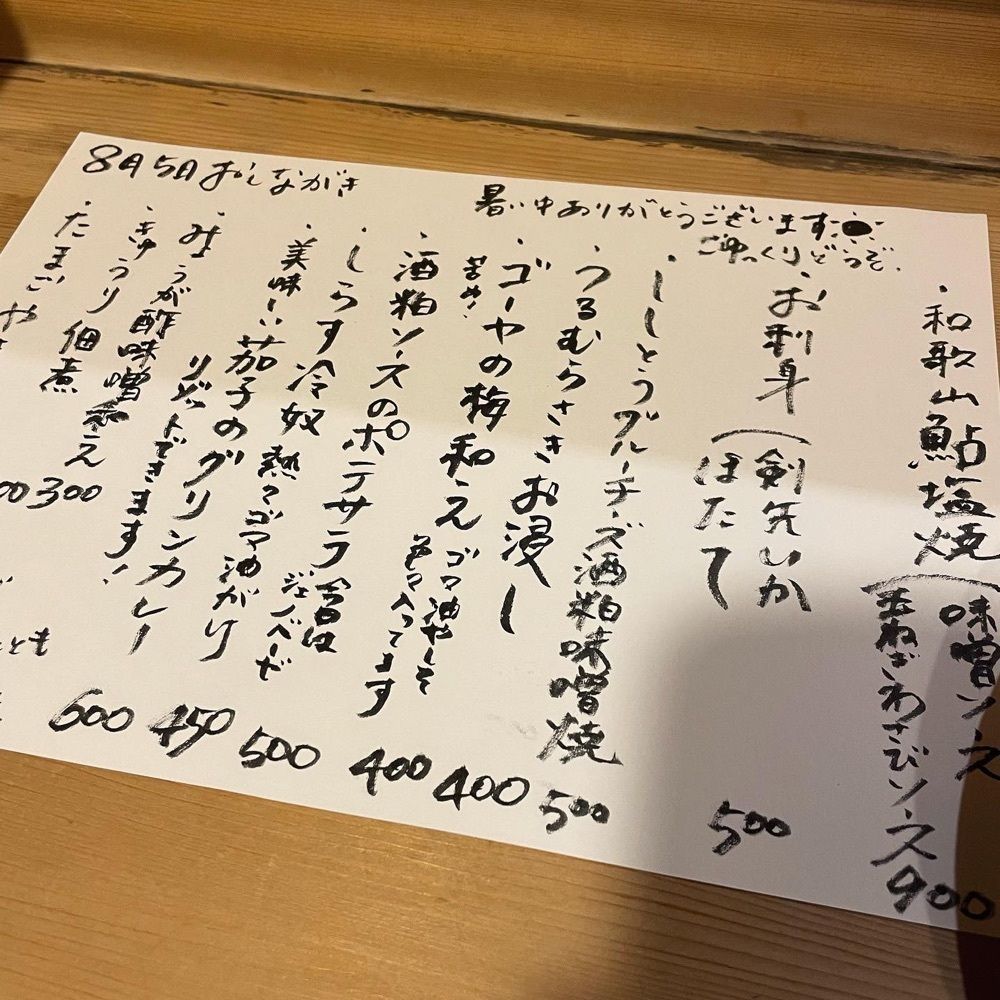 8月5日 おしながき
暑い中ありがとうございます
ごゆっくりどうぞ。
・和歌山鮎塩焼(味噌ソース
玉ねぎわさびソース
900
・お刺身(剣先いか
ほたて
500
・ししとうブルーチーズ酒粕味噌焼
500
・つるむらさきお浸し
400
・ゴーヤの梅和え
苦め!
ゴマ油やして
400
・酒粕ソースのポテサラ 今日は
ジェノベーゼ
500
・しらす冷奴 熱々ゴマ油がけ
450
・美味しい茄子のグリンカレー
リゾットできます!
600
・みょうが酢味噌和え
・きゅうり佃煮
300
・たまごやき
00
とも